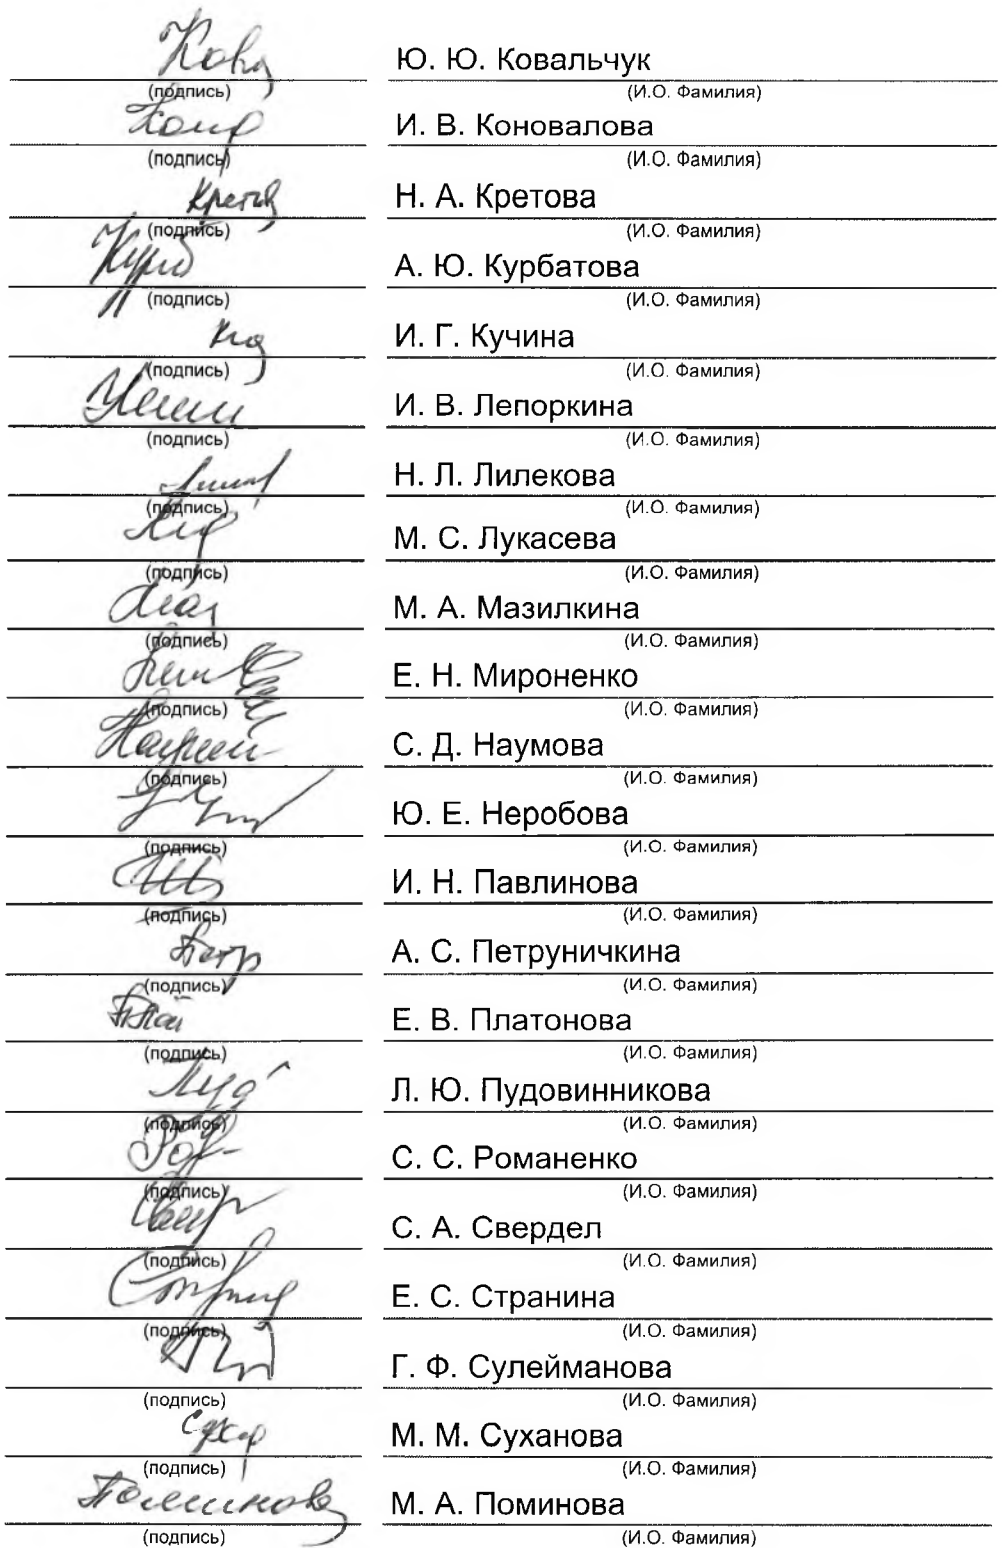 Ю. Ю. Ковальчук
(подпись) (И.О. Фамилия)
И. В. Коновалова
(подпись) (И.О. Фамилия)
Н. А. Кретова
(подпись) (И.О. Фамилия)
А. Ю. Курбатова
(подпись) (И.О. Фамилия)
И. Г. Кучина
(подпись) (И.О. Фамилия)
И. В. Лепоркина
(подпись) (И.О. Фамилия)
Н. Л. Лилекова
(подпись) (И.О. Фамилия)
М. С. Лукасева
(подпись) (И.О. Фамилия)
М. А. Мазилкина
(подпись) (И.О. Фамилия)
Е. Н. Мироненко
(подпись) (И.О. Фамилия)
С. Д. Наумова
(подпись) (И.О. Фамилия)
Ю. Е. Неробова
(подпись) (И.О. Фамилия)
И. Н. Павлинова
(подпись) (И.О. Фамилия)
А. С. Петруничкина
(подпись) (И.О. Фамилия)
Е. В. Платонова
(подпись) (И.О. Фамилия)
Л. Ю. Пудовинникова
(подпись) (И.О. Фамилия)
С. С. Романенко
(подпись) (И.О. Фамилия)
С. А. Свердел
(подпись) (И.О. Фамилия)
Е. С. Странина
(подпись) (И.О. Фамилия)
Г. Ф. Сулейманова
(подпись) (И.О. Фамилия)
М. М. Суханова
(подпись) (И.О. Фамилия)
Поминова М. А. Поминова
(подпись) (И.О. Фамилия)